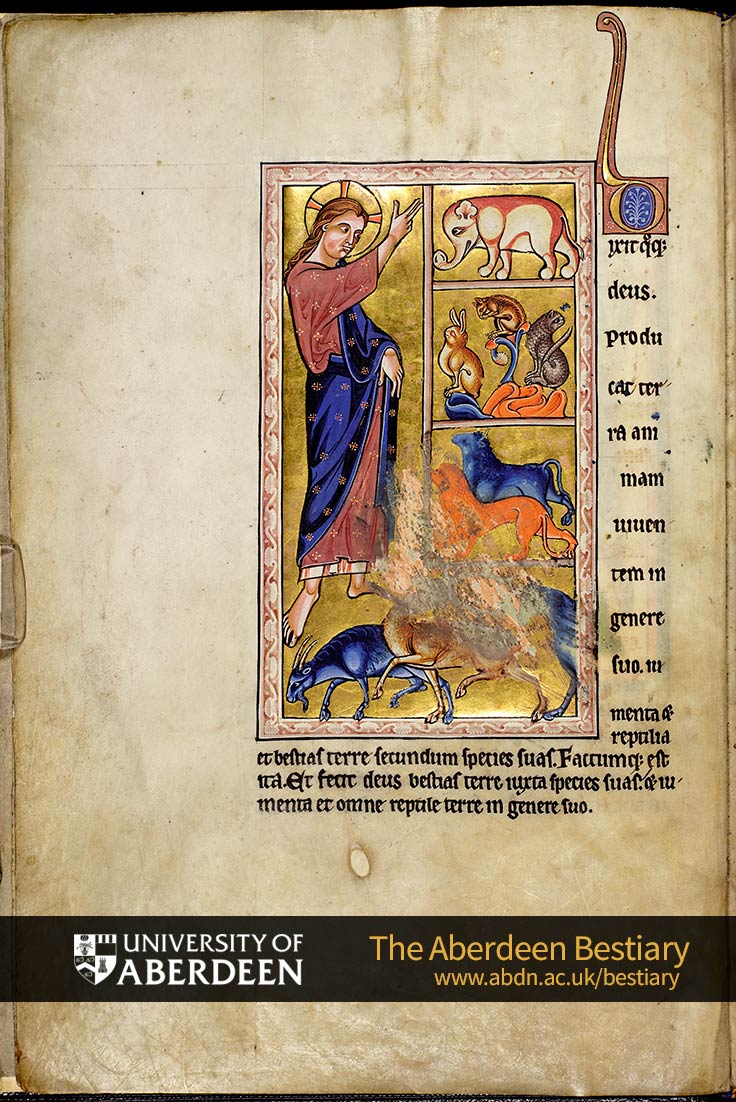 D
ixit q̄q:
deus.
Produ
cat ter
ra ani
mam
uiuen
tem in
genere
suo. iu
menta &
reptilia
et bestias terre secundum species suas. Factumq: est
ita. Et fecit deus bestias terre iuxta species suas. & iu
menta et omne reptile terre in genere suo.
UNIVERSITY OF
ABERDEEN
The Aberdeen Bestiary
www.abdn.ac.uk/bestiary